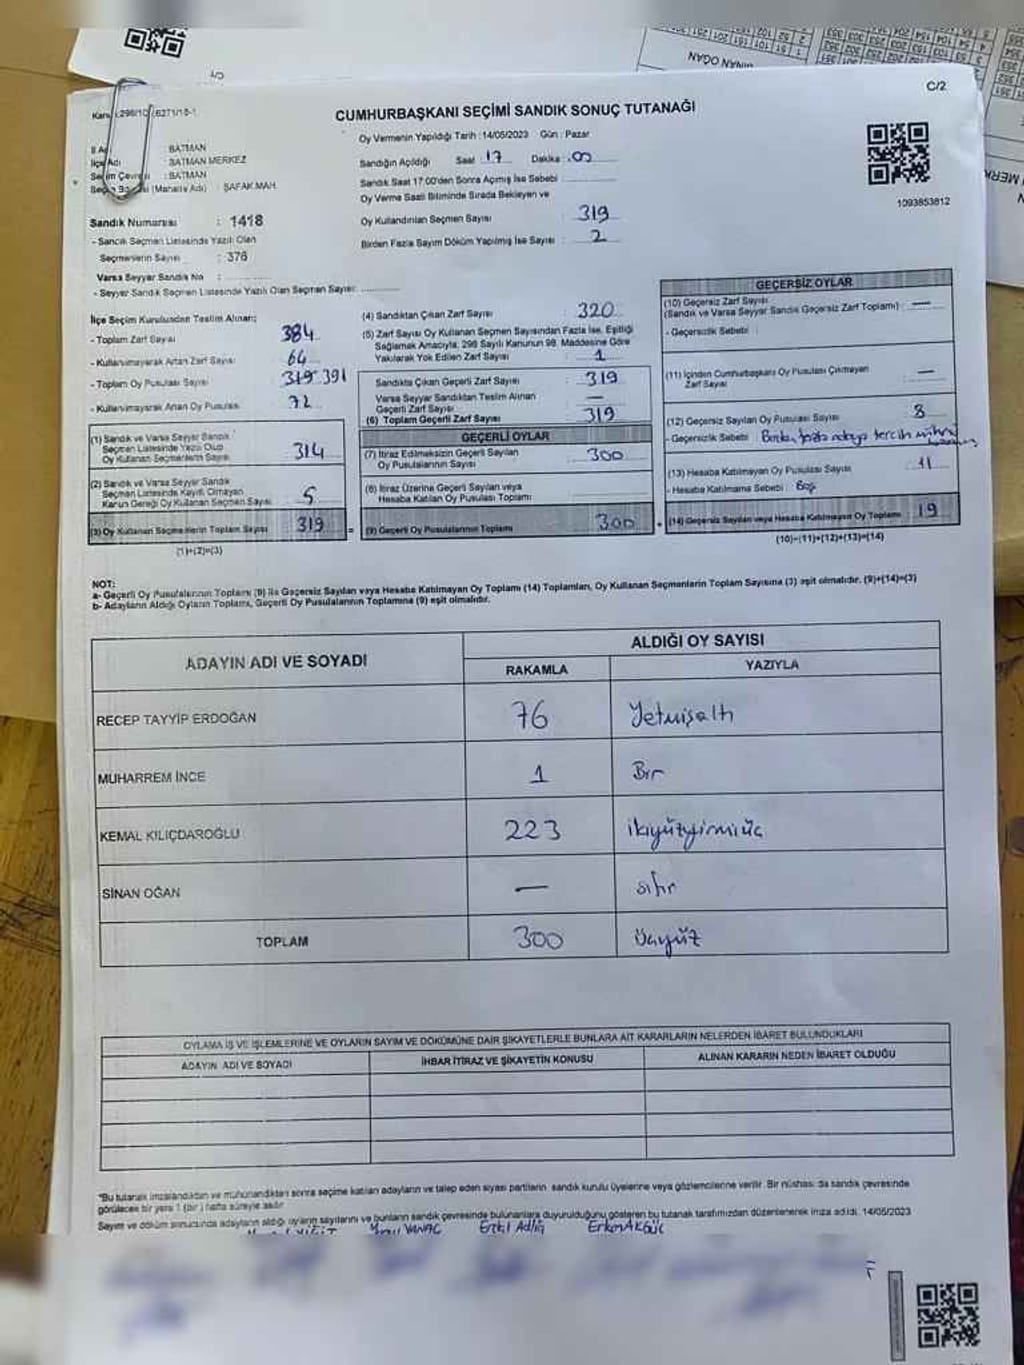 C/2
CUMHURBAŞKANI SEÇİMİ SANDIK SONUÇ TUTANAĞI
Oy Vermenin Yapıldığı Tarih : 14/05/2023 Gün : Pazar
BATMAN
İlçe Adı BATMAN MERKEZ
Seçim Çevresi : BATMAN
(Mahalle Adı) : ŞAFAK MAH.
Sandık Numarası : 1418
- Sandık Seçmen Listesinde Yazılı Olan
Seçmenlerin Sayısı : 376
Varsa Seyyar Sandık No :
- Seyyar Sandık Seçmen Listesinde Yazılı Olan Seçmen Sayısı:
Sandığın Açıldığı Saat 17 Dakika : 00
Sandık Saat 17:00'den Sonra Açılmış İse Sebebi :
Oy Verme Saati Bitiminde Sırada Bekleyen ve
Oy Kullandırılan Seçmen Sayısı : 319
Birden Fazla Sayım Döküm Yapılmış İse Sayısı : 2
1093853812
İlçe Seçim Kurulundan Teslim Alınan;
- Toplam Zarf Sayısı 384
- Kullanılmayarak Artan Zarf Sayısı 64
- Toplam Oy Pusulası Sayısı 319 391
- Kullanılmayarak Artan Oy Pusulası 72
(1) Sandık ve Varsa Seyyar Sandık
Seçmen Listesinde Yazılı Olup
Oy Kullanan Seçmenlerin Sayısı 314
(2) Sandık ve Varsa Seyyar Sandık
Seçmen Listesinde Kayıtlı Olmayan
Kanun Gereği Oy Kullanan Seçmen Sayısı 5
(3) Oy Kullanan Seçmenlerin Toplam Sayısı 319
(1)+(2)=(3)
(4) Sandıktan Çıkan Zarf Sayısı : 320
(5) Zarf Sayısı Oy Kullanan Seçmen Sayısından Fazla İse, Eşitliği
Sağlamak Amacıyla, 298 Sayılı Kanunun 98. Maddesine Göre
Yakılarak Yok Edilen Zarf Sayısı : 1
Sandıkta Çıkan Geçerli Zarf Sayısı : 319
Varsa Seyyar Sandıktan Teslim Alınan
Geçerli Zarf Sayısı : —
(6) Toplam Geçerli Zarf Sayısı : 319
GEÇERLİ OYLAR
(7) İtiraz Edilmeksizin Geçerli Sayılan
Oy Pusulasının Sayısı : 300
(8) İtiraz Üzerine Geçerli Sayılan veya
Hesaba Katılan Oy Pusulası Toplamı :
= (9) Geçerli Oy Pusulalarının Toplamı : 300
GEÇERSİZ OYLAR
(10) Geçersiz Zarf Sayısı
(Sandık ve Varsa Seyyar Sandık Geçersiz Zarf Toplamı) : —
- Geçersizlik Sebebi :
(11) İçinden Cumhurbaşkanı Oy Pusulası Çıkmayan
Zarf Sayısı : —
(12) Geçersiz Sayılan Oy Pusulası Sayısı : 8
- Geçersizlik Sebebi : Birden fazla adaya tercih mührü
(13) Hesaba Katılmayan Oy Pusulası Sayısı : 11
- Hesaba Katılmama Sebebi : Boş
+ (14) Geçersiz Sayılan veya Hesaba Katılmayan Oy Toplamı : 19
(10)+(11)+(12)+(13)=(14)
NOT:
a- Geçerli Oy Pusulalarının Toplamı (9) ile Geçersiz Sayılan veya Hesaba Katılmayan Oy Toplamı (14) Toplamları, Oy Kullanan Seçmenlerin Toplam Sayısına (3) eşit olmalıdır. (9)+(14)=(3)
b- Adayların Aldığı Oyların Toplamı, Geçerli Oy Pusulalarının Toplamına (9) eşit olmalıdır.
ADAYIN ADI VE SOYADI
ALDIĞI OY SAYISI
RAKAMLA YAZIYLA
RECEP TAYYİP ERDOĞAN 76 Yetmişaltı
MUHARREM İNCE 1 Bir
KEMAL KILIÇDAROĞLU 223 ikiyüzyirmiüç
SİNAN OĞAN — sıfır
TOPLAM 300 üçyüz
OYLAMA İŞ VE İŞLEMLERİNE VE OYLARIN SAYIM VE DÖKÜMÜNE DAİR ŞİKAYETLERLE BUNLARA AİT KARARLARIN NELERDEN İBARET BULUNDUKLARI
ADAYIN ADI VE SOYADI İHBAR İTİRAZ VE ŞİKAYETİN KONUSU ALINAN KARARIN NEDEN İBARET OLDUĞU
*Bu tutanak imzalandıktan ve mühürlendikten sonra seçime katılan adayların ve talep eden siyasi partilerin, sandık kurulu üyelerine veya gözlemcilerine verilir. Bir nüshası da sandık çevresinde
görülecek bir yere 1 (bir) hafta süreyle asılır
Sayım ve döküm sonucunda adayların aldığı oyların sayılarını ve bunların sandık çevresinde bulunanlara duyurulduğunu gösteren bu tutanak tarafımızdan düzenlenerek imza edildi. 14/05/2023